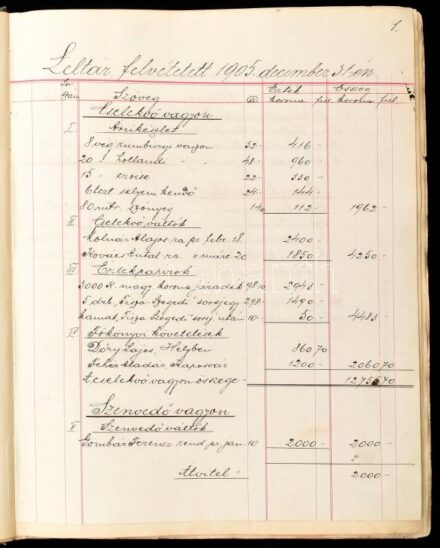 1.
Leltár, felvétetett 1905. december 31-én
Sor szám Szöveg @ Érték korona fill. Összeg korona fill.
Cselekvő vagyon
I. Árukészlet
8 vég rumburgi vászon 52- 416-
20 " hollandi " " 48- 960-
15 " creise 22- 330-
6 tczt selyem kendő 24- 144-
80 mtr. szőnyeg 140 112- 1962-
II Cselekvő váltók
Molnár Alajos ra pr. febr. 18. 2400-
Kovács Antal ra " márc 20 1850- 4250-
III Értékpapírok
3000 K. magy. korona járadék 98 10 2943-
5 drb. "Tisza-Szegedi" sorsjegy 298- 1490-
kamat, Tisza Szegedi sorsj. után 10- 50- 4483-
IV Főkönyvi követelések
Dőry Lajos, Helyben 860 70
Fehér Aladár, Kaposvár 1200- 2060 70
A cselekvő vagyon összege- 12,755 70
Szenvedő vagyon
V Szenvedő váltók
Gombár Ferencz rend. pr. jan 10 2000- 2000-
Átvitel- 2000-